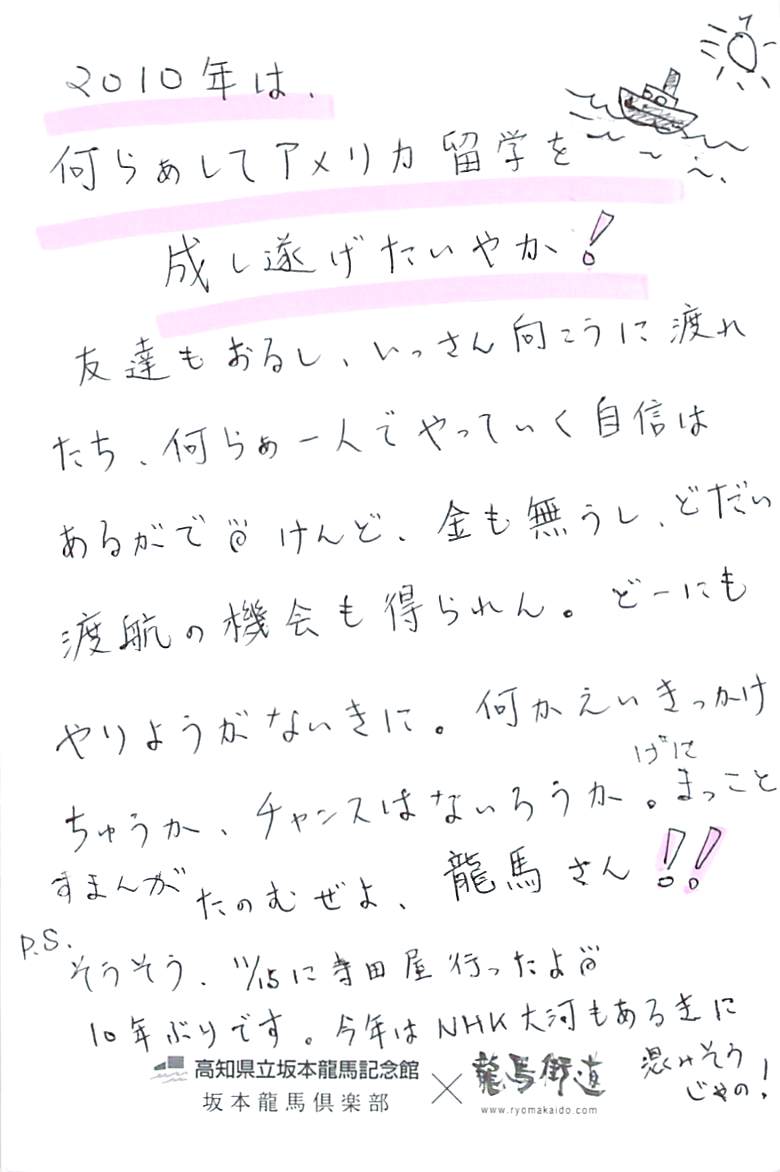 2010年は、
何らぁしてアメリカ留学を
成し遂げたいやか!
友達もおるし、いっさん向こうに渡れ
たち、何らぁ一人でやっていく自信は
あるがで けんど、金も無うし、どだい
渡航の機会も得られん。どーにも
やりようがないきに。何かえいきっかけ
ちゅうか、チャンスはないろうか。まっこと
げに
すまんが たのむぜよ、龍馬さん!!
P.S.
そうそう、11/15に寺田屋行ったよ
10年ぶりです。今年はNHK大河もあるきに
混みそう
じゃの!
高知県立坂本龍馬記念館
坂本龍馬倶楽部
×
龍馬街道
www.ryomakaido.com